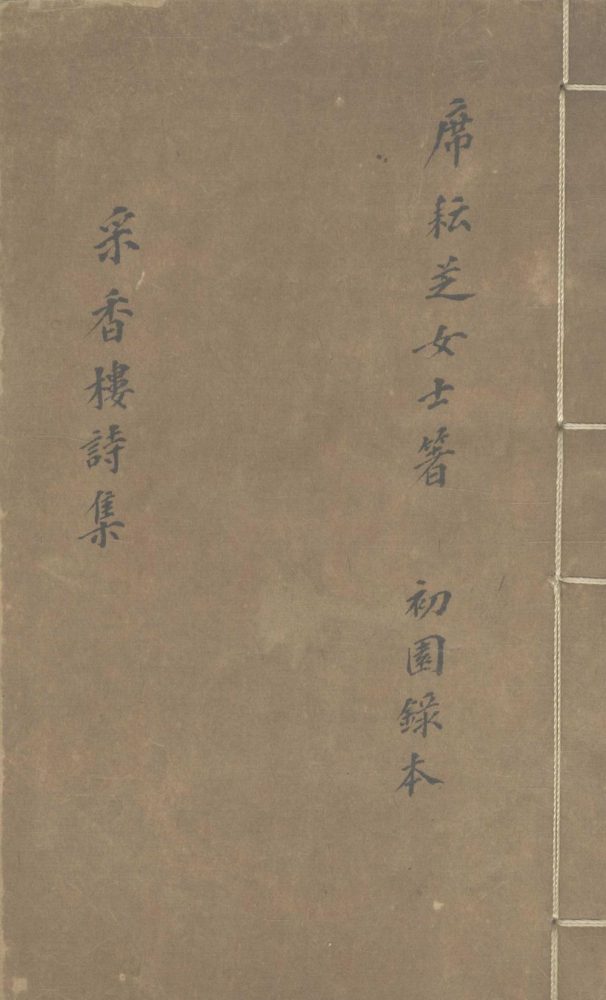 席耘芝女士箸　初園錄本
采香樓詩集